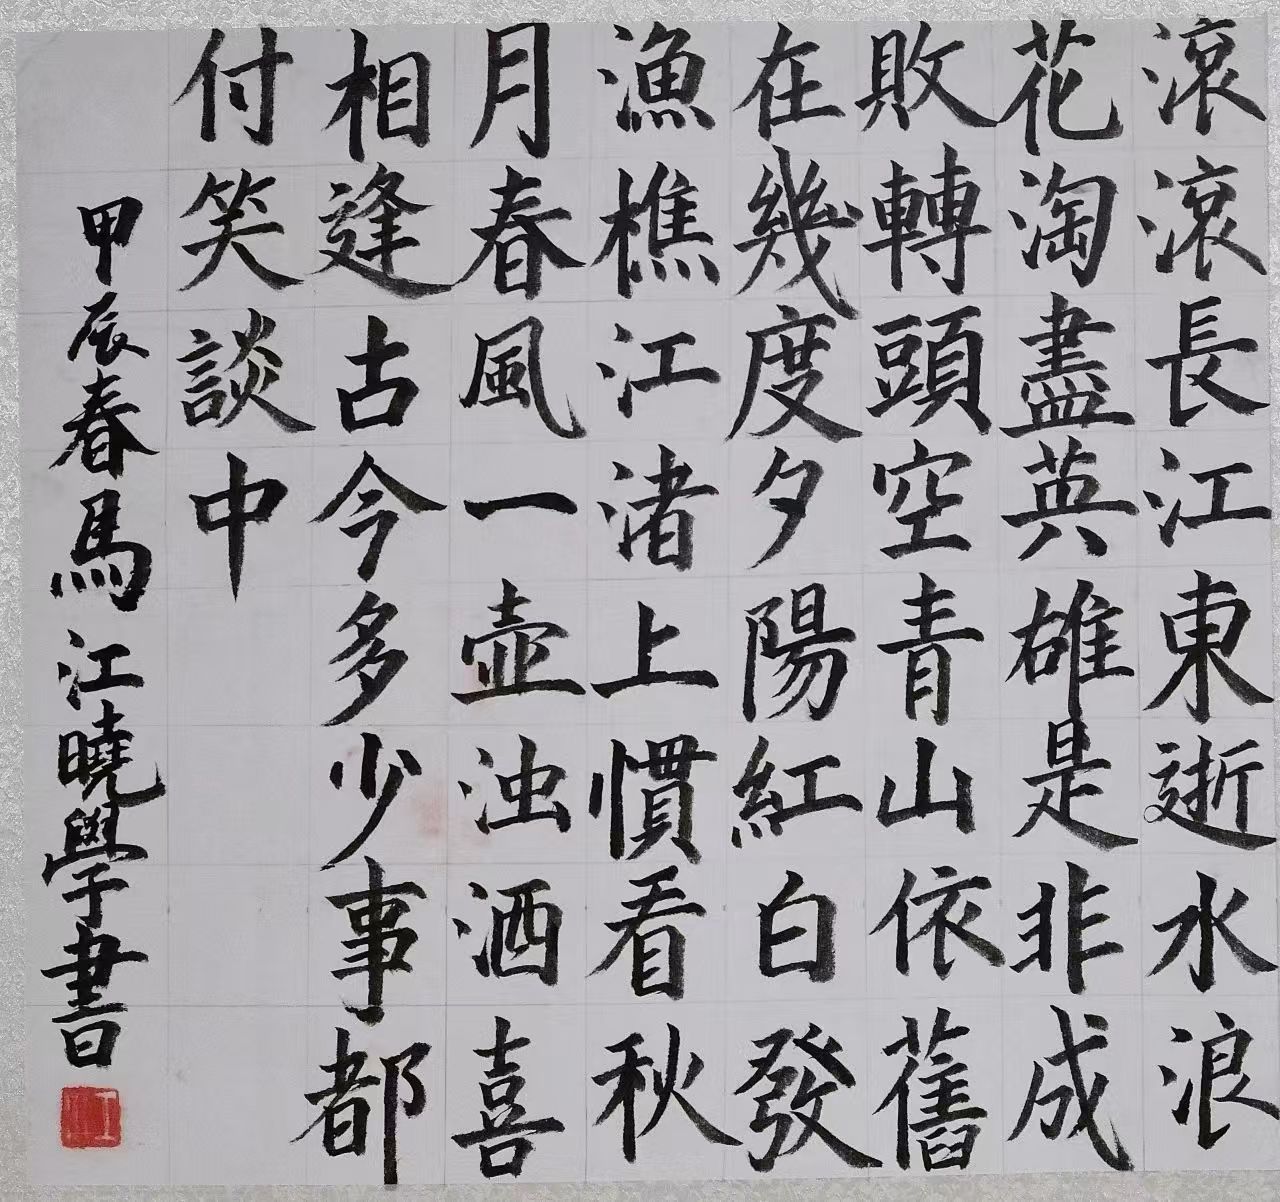 滾滾長江東逝水浪
花淘盡英雄是非成
敗轉頭空青山依舊
在幾度夕陽紅白發
漁樵江渚上慣看秋
月春風一壺浊酒喜
相逢古今多少事都
付笑談中
甲辰春馬江曉學書